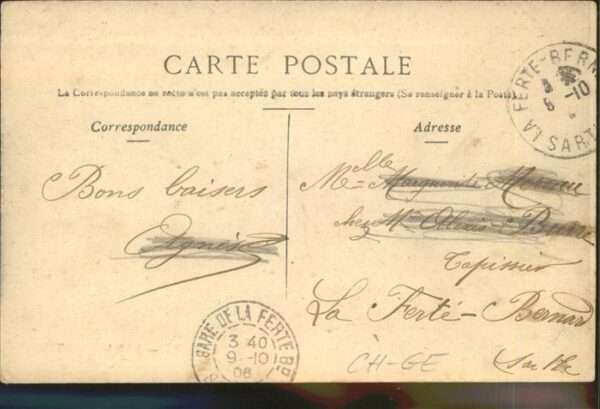 CARTE POSTALE
La Correspondance au recto n'est pas acceptée par tous les pays étrangers (Se renseigner à la Poste)
Correspondance
Adresse
LA FERTE-BERN
SARTH
-10
Bons baisers
Agnès
Melle Marguerite
chez Mr Alexis
Tapissier
La Ferté-Bernard
Sarthe
GARE DE LA FERTE BD
3 40
9 -10
08
CH-GE